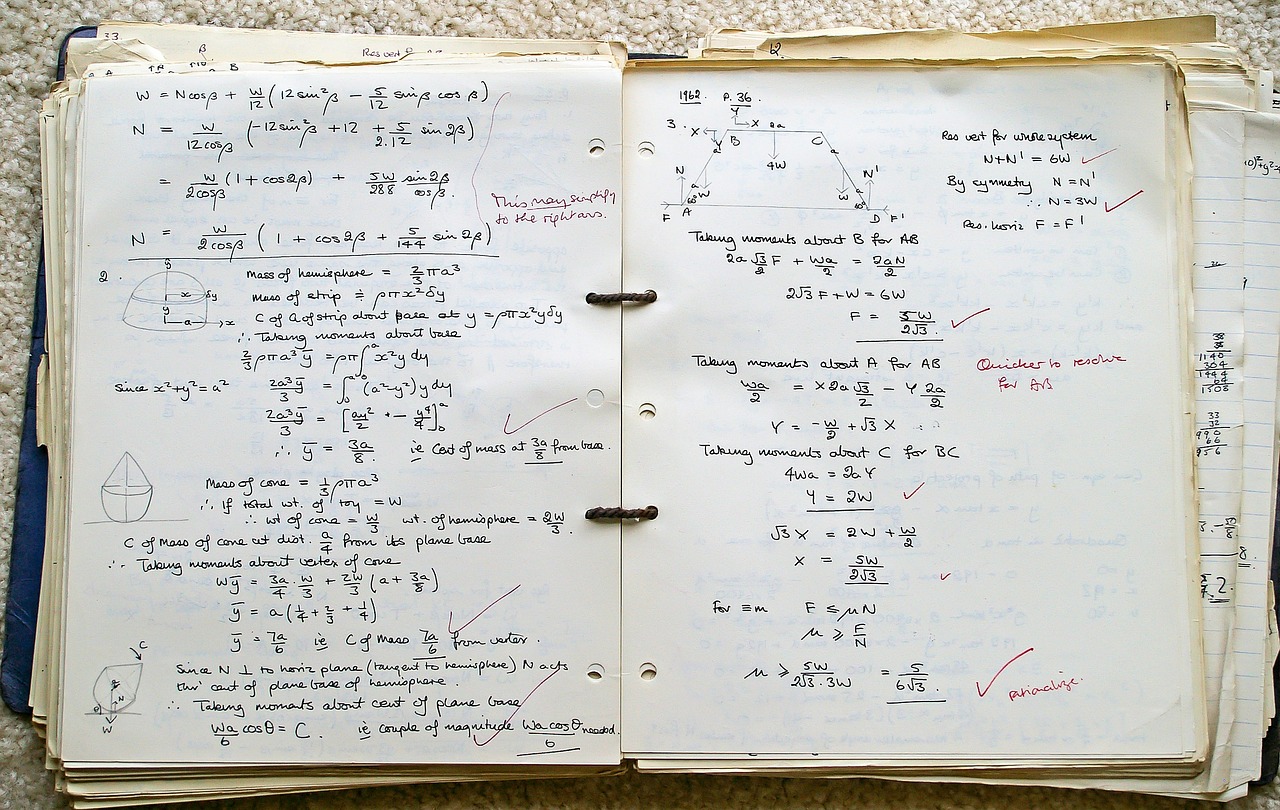 33.
β
Res vert
B
W = Ncosβ + W/12 (12sin²β − 5/12 sinβ cosβ)
N = W/12cosβ (−12sin²β + 12 + 5/2.12 sin2β)
= W/2cosβ (1 + cos2β) + 5W/288 sin2β/cosβ.
This may simplify
to the right ans.
N = W/2cosβ (1 + cos2β + 5/144 sin2β)
2.
y
x
δy
y
a
x
Mass of hemisphere = 2/3 πa³
Mass of strip ≑ ρπx²δy
C of G of strip about base at y = ρπx²yδy
∴ Taking moments about base
2/3 ρπa³ȳ = ρπ∫₀ᵃ x²y dy
Since x²+y²=a²  2a³ȳ/3 = ∫₀ᵃ (a²−y²)y dy
2a³ȳ/3 = [ay²/2 − y⁴/4]₀ᵃ
∴ ȳ = 3a/8  ie Cent of mass at 3a/8 from base.
Mass of cone = 1/3 ρπa³
∴ If total wt. of toy = W
∴ wt of cone = W/3  wt. of hemisphere = 2W/3.
C of Mass of cone at dist. a/4 from its plane base
∴ Taking moments about vertex of cone
Wȳ = 3a/4 . W/3 + 2W/3 (a + 3a/8)
ȳ = a(1/4 + 2/3 + 1/4)
ȳ = 7a/6  ie C of Mass 7a/6 from vertex.
C
N
θ
W
Since N ⊥ to horiz plane (tangent to hemisphere) N acts
thro' cent of plane base of hemisphere.
∴ Taking moments about cent of plane base
Wa/6 cosθ = C.  ie couple of magnitude Wa cosθ/6 needed.
1962.  P.36.
3.
Y
X
X
2a
B
C
Y
a
4W
a
N
N'
a
W
W
a
60°
60°
F
A
D
F'
Res vert for whole system
N+N' = 6W
By symmetry  N = N'
∴ N = 3W
Res. horiz  F = F'
Taking moments about B for AB
2a √3/2 F + Wa/2 = 2aN/2
2√3 F + W = 6W
F = 5W/2√3.
Taking moments about A for AB
Quicker to resolve
for AB
Wa/2 = X 2a √3/2 − Y 2a/2
Y = −W/2 + √3 X
Taking moments about C for BC
4Wa = 2aY
Y = 2W
√3 X = 2W + W/2
X = 5W/2√3
For ≡m  F ≤ μN
μ ≥ F/N
μ ≥ 5W/2√3.3W = 5/6√3.
rationalize.
38
38
1140
304
1444
64
1508
33
32
990
66
956